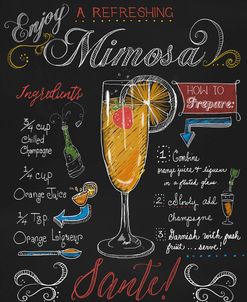 Enjoy
A REFRESHING
Mimosa
Ingredients
3/4 cup
chilled
Champagne
1/4 cup
Orange Juice
1/4 Tsp
Orange Liqueur
HOW TO
Prepare:
1: Combine
orange juice & liqueur
in a fluted glass.
2: Slowly add
champagne
3: Garnish with fresh
fruit ... serve!
Santé!